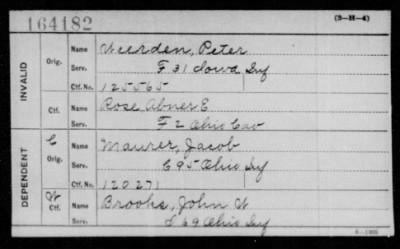 164182
(3-H-4)
INVALID
Orig. Name Weerden, Peter
Serv. F 31 Iowa Inf
Ctf. No. 125565
Ctf. Name Rose, Abner E
Serv. F 2 Ohio Cav
DEPENDENT
C Orig. Name Maurer, Jacob
Serv. C 95 Ohio Inf
Ctf. No. 120271
W Ctf. Name Brooks, John W
Serv. 69 Ohio Inf